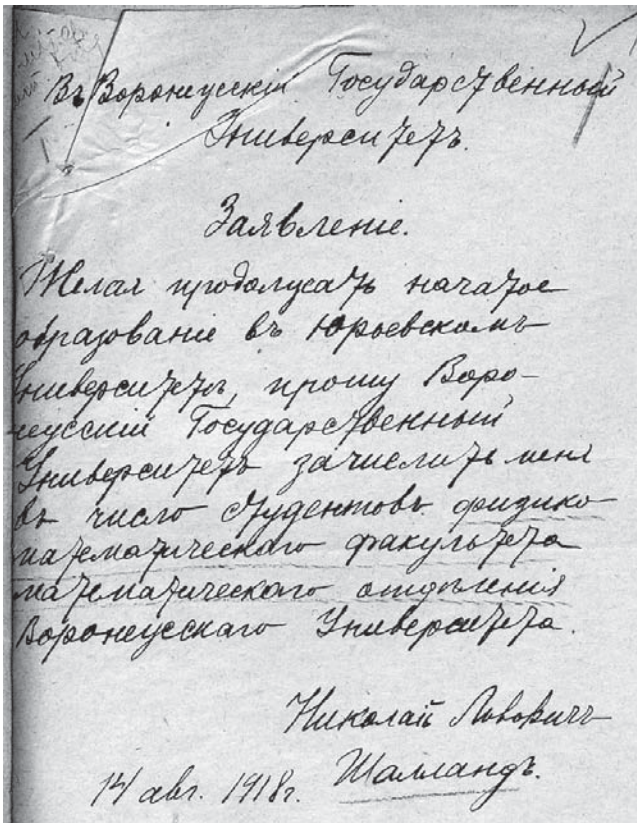 Въ Воронежскій Государственный
Университетъ.
Заявленіе.
Желая продолжать начатое
образованіе въ Юрьевскомъ
Университетѣ, прошу Воро-
нежскій Государственный
Университетъ зачислить меня
въ число студентовъ физико
математическаго факультета
математическаго отдѣленія
Воронежскаго Университета.
Николай Львовичъ
Шалландъ.
14 авг. 1918г.